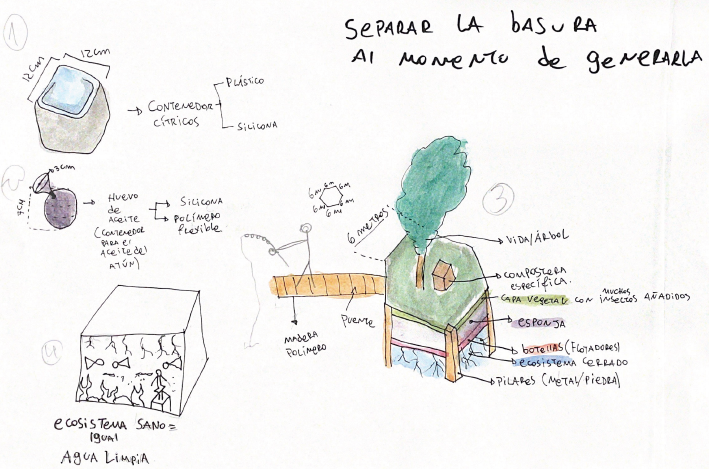 SEPARAR LA bASURA
Al MOMENTO de geNERARLA
1
12cm
12cm
CONTENEDOR
CÍTRICOS
PLÁSTICO
SILICONA
2
3cm
7cm
HUEVO
de
ACEITE
(CONTENEDOR
PARA El
ACEITE del
ATÚN)
SILICONA
POLÍMERO
flexible
3
6m
6m
6m
6m
6m
6m
6 metros
VIDA/ÁRBOL
COMPOSTERA
ESPECÍFICA.
CAPA VEGETAL CON MUCHOS INSECTOS AÑADIDOS
ESPONJA
bOTELLAS (FLOTADORES)
ECOSISTEMA CERRADO
PILARES (METAL/PIEDRA)
PUENTE
MADERA
POLÍMERO
4
ECOSISTEMA SANO =
IGUAL
AGUA LIMPIA